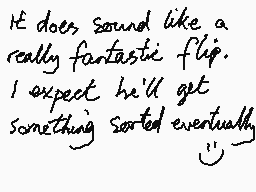 It does sound like a
really fantastic flip.
I expect he'll get
something sorted eventually